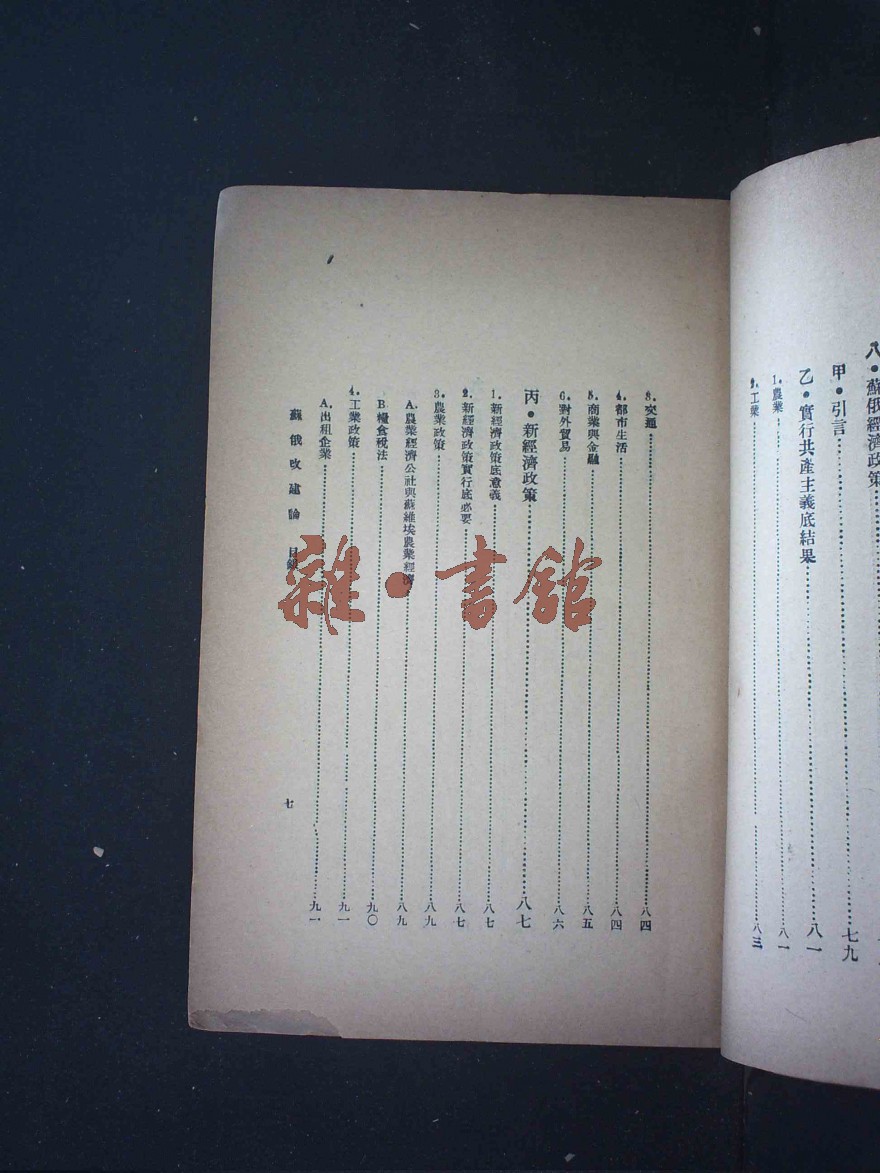 八・蘇俄經濟政策
甲・引言……七九
乙・實行共產主義底結果……八一
1.農業……八一
2.工業……八三
3.交通……八四
4.都市生活……八四
5.商業與金融……八五
6.對外貿易……八六
丙・新經濟政策……八七
1.新經濟政策底意義……八七
2.新經濟政策實行底必要……八七
3.農業政策……八九
A.農業經濟公社與蘇維埃農業經濟……八九
B糧食稅法……九〇
4.工業政策……九一
A.出租企業……九一
蘇俄改建論 目錄
七
雜・書館